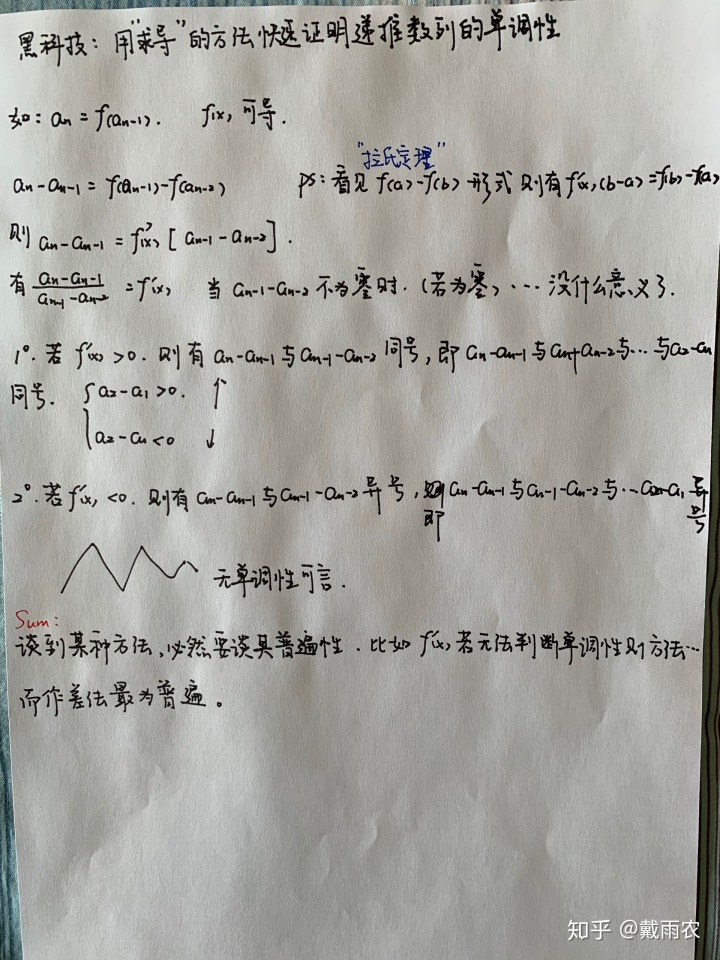 黑科技：用"求导"的方法快速证明递推数列的单调性
如：an = f(an-1). f(x)可导.
"拉氏定理"
an-an-1 = f(an-1)-f(an-2) ps：看见 f(a)-f(b) 形式 则有 f'(x)(b-a)=f(b)-f(a)
则 an-an-1 = f'(x) [an-1-an-2].
有 an-an-1/an-1-an-2 = f'(x) 当 an-1-an-2 不为零时.（若为零）… 没什么意义了.
1°. 若 f'(x)>0. 则有 an-an-1 与 an-1-an-2 同号，即 an-an-1 与 an-1-an-2 与… 与 a2-a1
同号. { a2-a1>0. ↑
a2-a1<0 ↓
2°. 若 f'(x)<0. 则有 an-an-1 与 an-1-an-2 异号，即 an-an-1 与 an-1-an-2 与… a2-a1 异号
无单调性可言.
Sum：
谈到某种方法，必然要谈其普遍性. 比如 f'(x) 若无法判断单调性则方法…
而作差法最为普遍。
知乎 @戴雨农